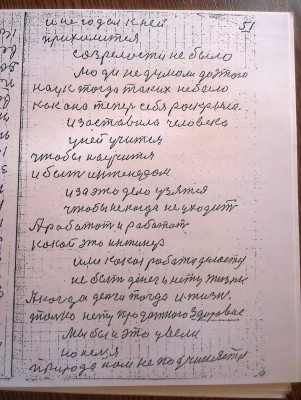 51
и не годен к ней
прихилится
созрелости не было
люди не думом до того
наук тогда таких небыло
как она тепер себя роскрыла.
и заставила человека
у ней учится
чтобы научится
и быть
и за это дело узятся
чтобы некогда не уходить
А работат и работат
какой это
или какая работа делаеть
не быть денег и нету жизни
А когда денги тогда и жизн.
только нету продажного здоровие
мы бы и это увели
но нелзя
природа нам не подчиняеть